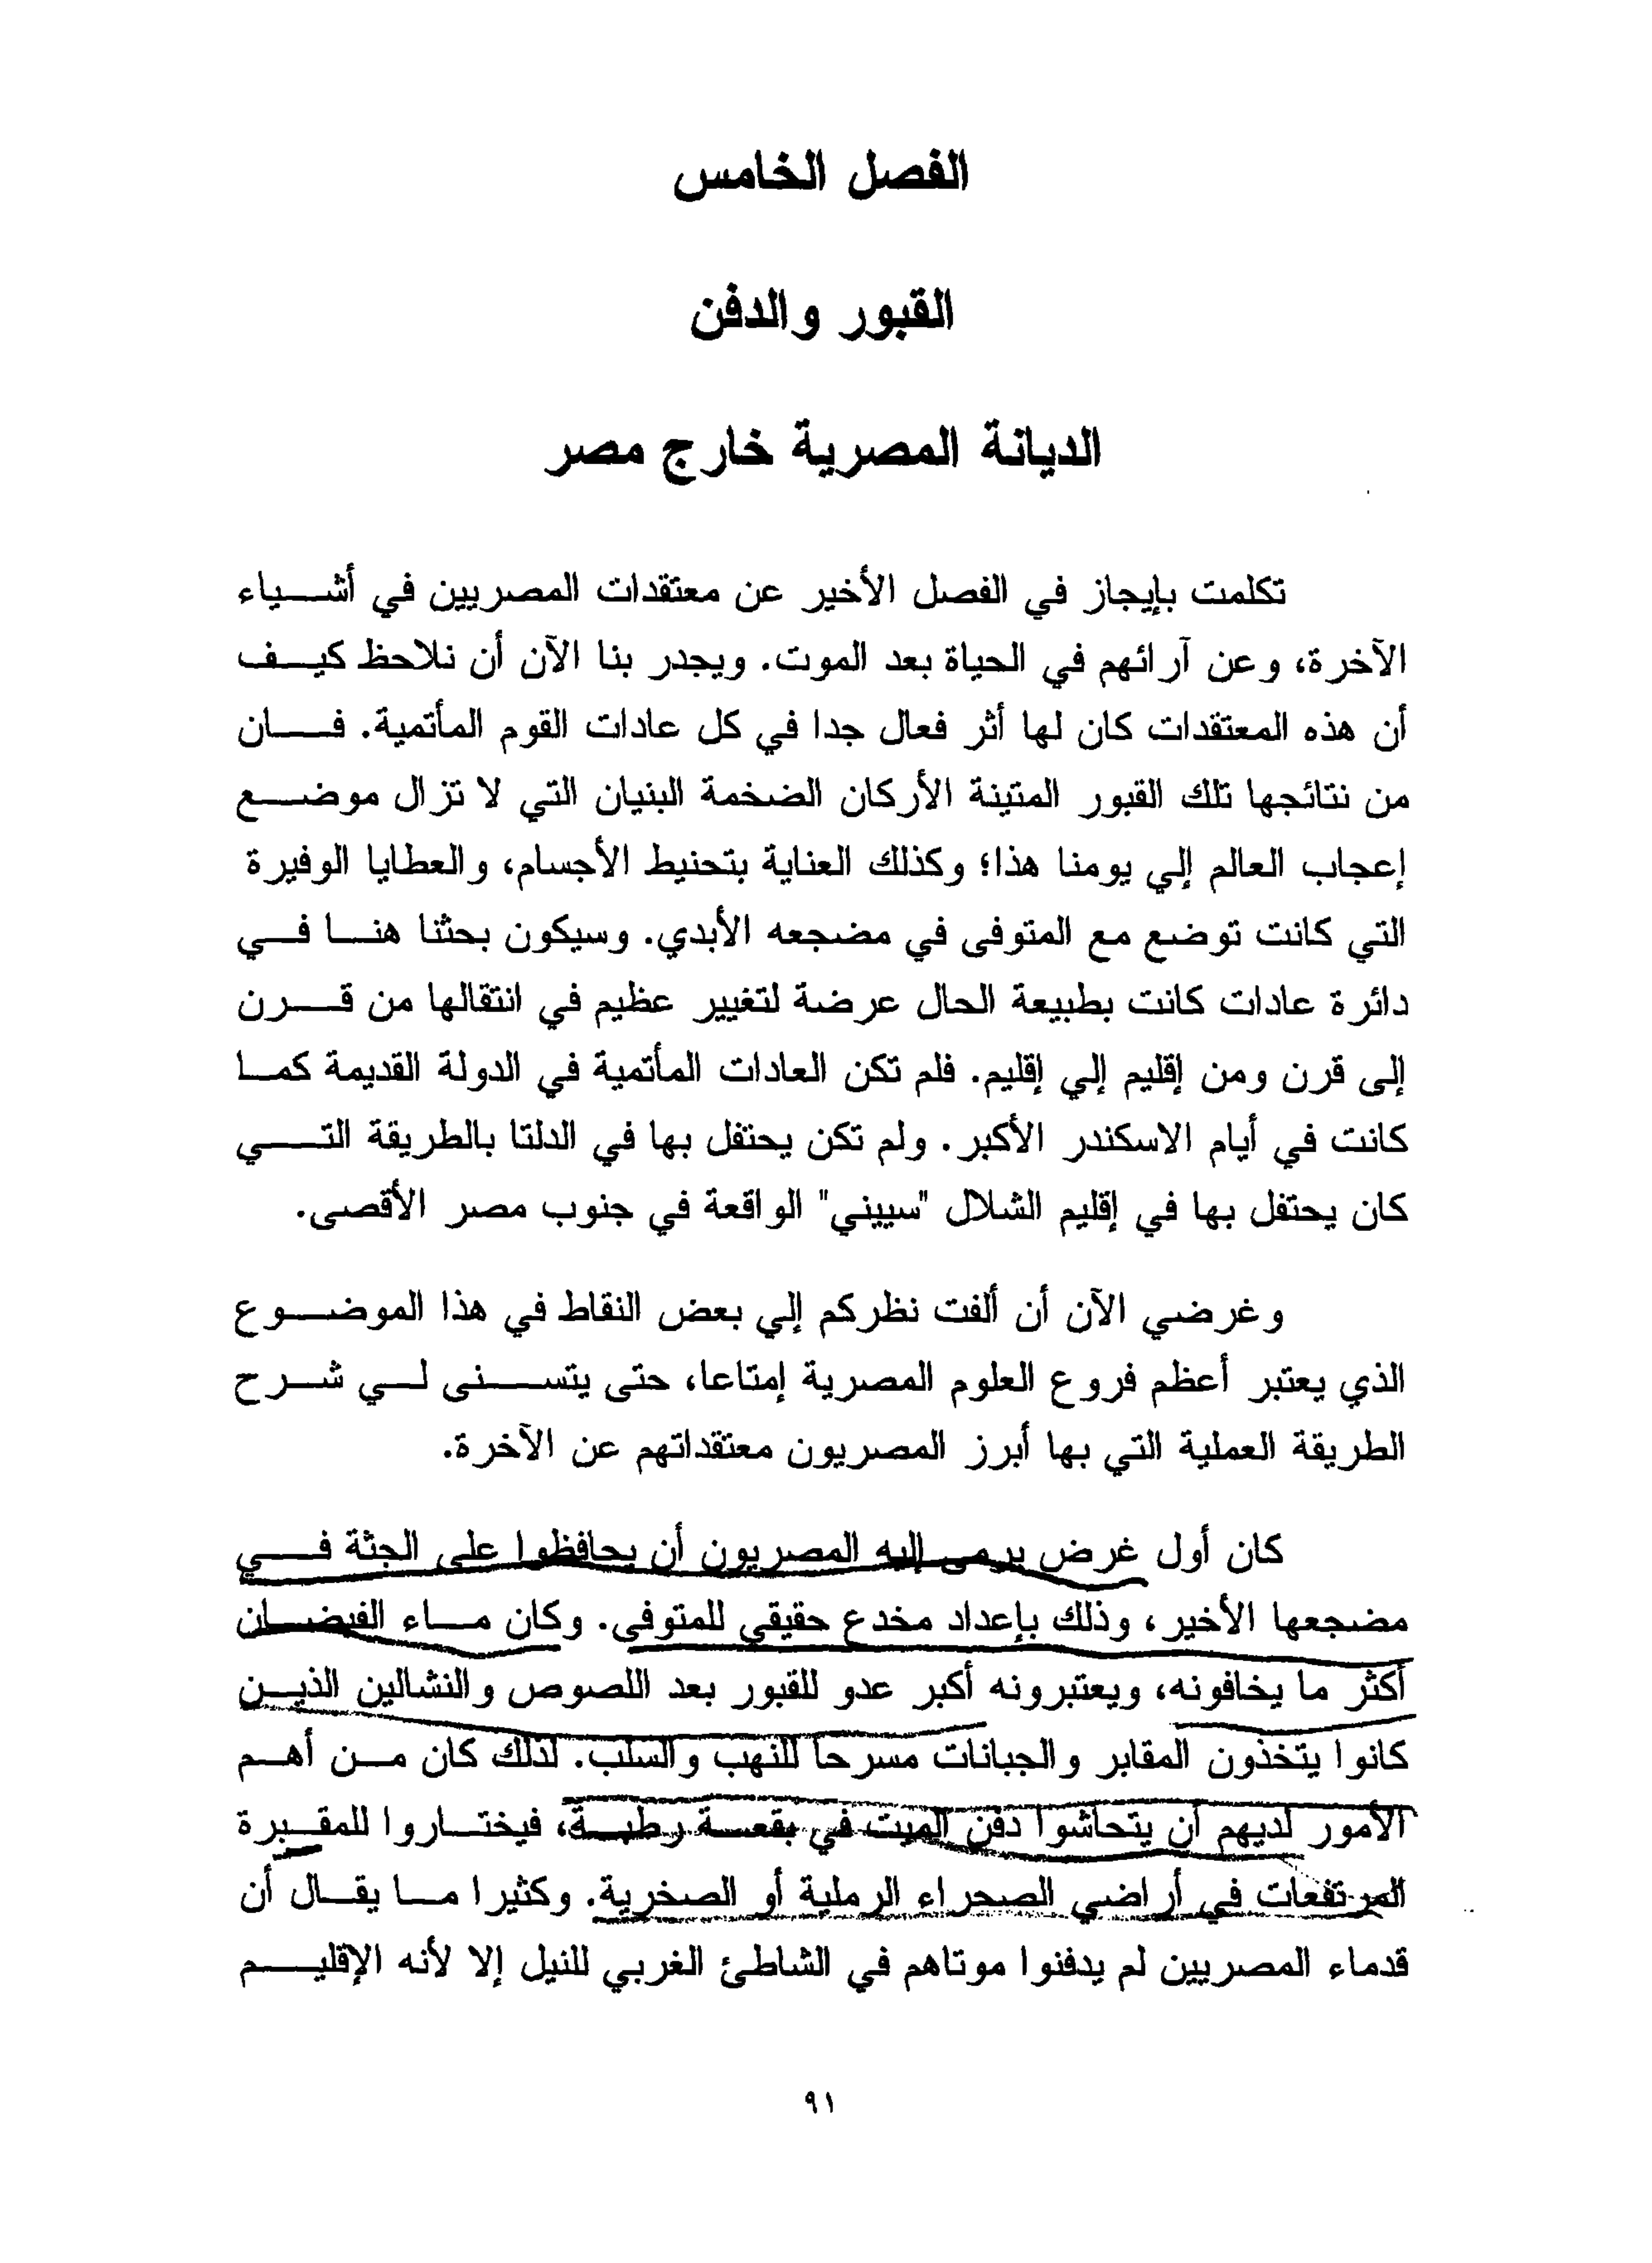 الفصل الخامس
القبور والدفن
الديانة المصرية خارج مصر
تكلمت بإيجاز في الفصل الأخير عن معتقدات المصريين في أشياء
الآخرة، وعن آرائهم في الحياة بعد الموت. ويجدر بنا الآن أن نلاحظ كيف
أن هذه المعتقدات كان لها أثر فعال جدا في كل عادات القوم المأتمية. فان
من نتائجها تلك القبور المتينة الأركان الضخمة البنيان التي لا تزال موضع
إعجاب العالم إلي يومنا هذا؛ وكذلك العناية بتحنيط الأجسام، والعطايا الوفيرة
التي كانت توضع مع المتوفى في مضجعه الأبدي. وسيكون بحثنا هنا في
دائرة عادات كانت بطبيعة الحال عرضة لتغيير عظيم في انتقالها من قرن
إلى قرن ومن إقليم إلي إقليم. فلم تكن العادات المأتمية في الدولة القديمة كما
كانت في أيام الاسكندر الأكبر. ولم تكن يحتفل بها في الدلتا بالطريقة التي
كان يحتفل بها في إقليم الشلال "سييني" الواقعة في جنوب مصر الأقصى.
وغرضي الآن أن ألفت نظركم إلي بعض النقاط في هذا الموضوع
الذي يعتبر أعظم فروع العلوم المصرية إمتاعا، حتى يتسنى لي شرح
الطريقة العملية التي بها أبرز المصريون معتقداتهم عن الآخرة.
كان أول غرض يرمى إليه المصريون أن يحافظوا على الجثة في
مضجعها الأخير، وذلك بإعداد مخدع حقيقي للمتوفى. وكان ماء الفيضان
أكثر ما يخافونه، ويعتبرونه أكبر عدو للقبور بعد اللصوص والنشالين الذين
كانوا يتخذون المقابر والجبانات مسرحا للنهب والسلب. لذلك كان من أهم
الأمور لديهم أن يتحاشوا دفن الميت في بقعة رطبة، فيختاروا للمقبرة
المرتفعات في أراضي الصحراء الرملية أو الصخرية. وكثيرا ما يقال أن
قدماء المصريين لم يدفنوا موتاهم في الشاطئ الغربي للنيل إلا لأنه الإقليم
٩١